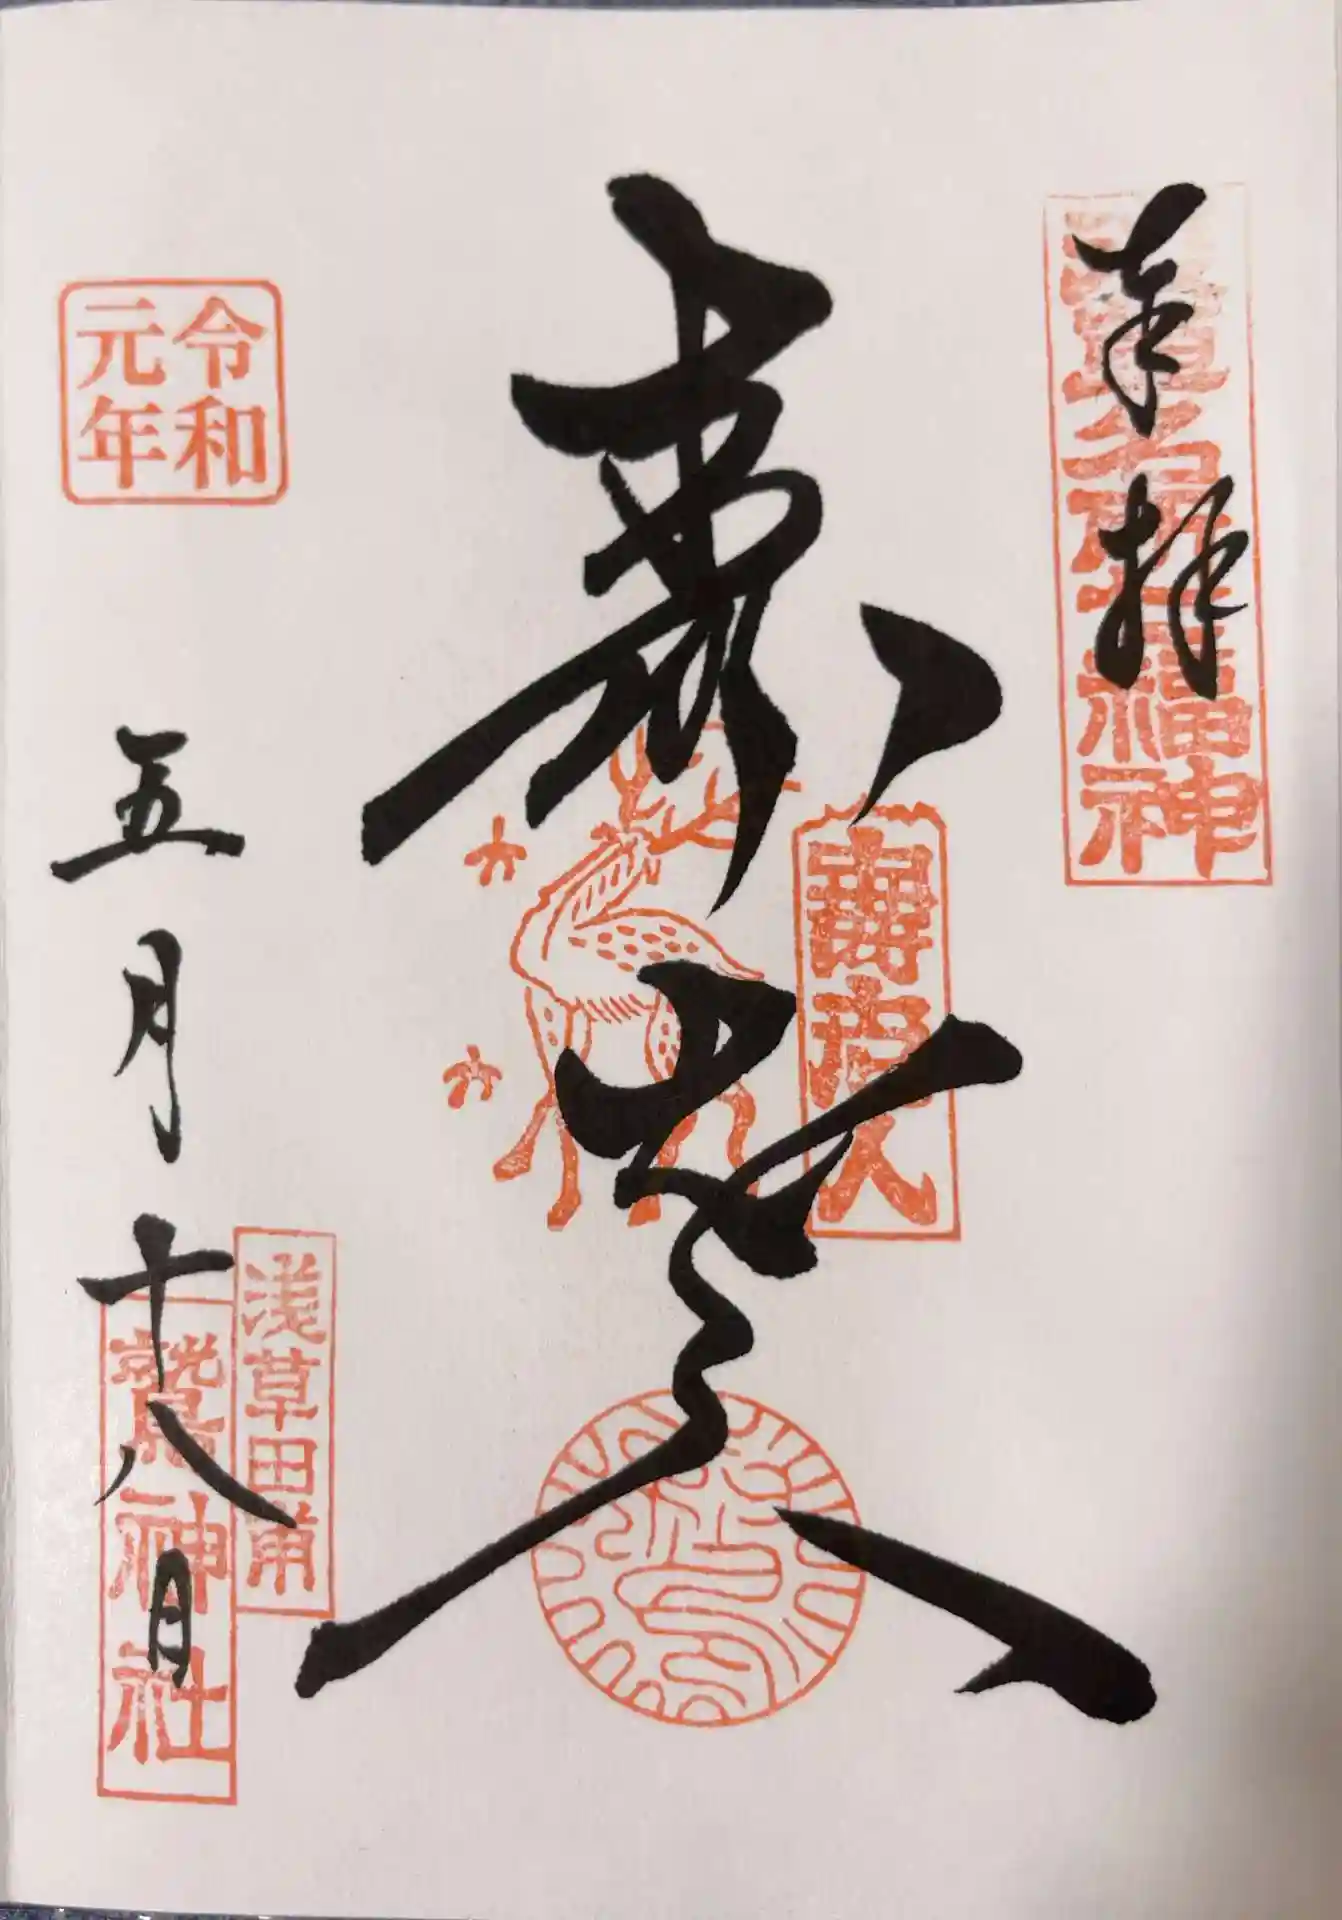 奉拝
浅草名所七福神
壽老人
壽老人
令和
元年
五月十八日
浅草田甫
鷲神社